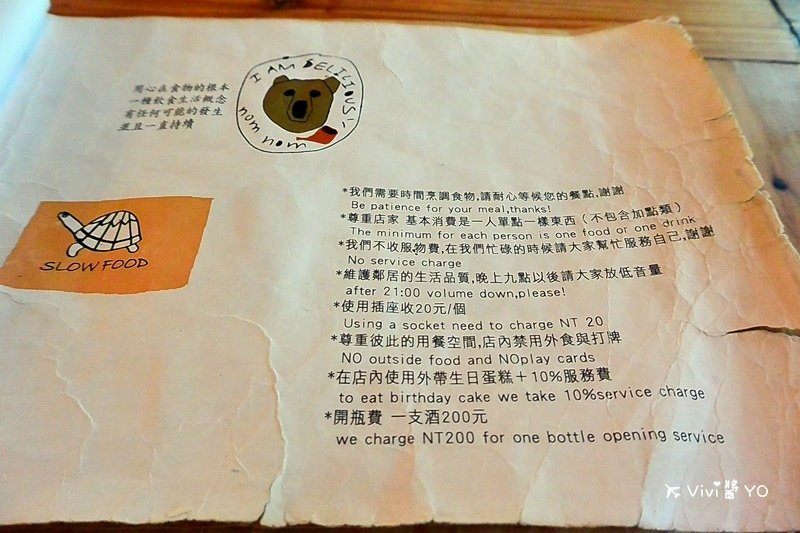 用心在食物的根本
一種飲食生活概念
有任何可能的發生
並且一直持續
I AM DELICIOUS!!
nom nom
SLOW FOOD
*我們需要時間烹調食物,請耐心等候您的餐點,謝謝
Be patience for your meal,thanks!
*尊重店家 基本消費是一人單點一樣東西（不包含加點類）
The minimum for each person is one food or one drink
*我們不收服物費,在我們忙碌的時候請大家幫忙服務自己,謝謝
No service charge
*維護鄰居的生活品質,晚上九點以後請大家放低音量
after 21:00 volume down,please!
*使用插座收20元/個
Using a socket need to charge NT 20
*尊重彼此的用餐空間,店內禁用外食與打牌
NO outside food and NOplay cards
*在店內使用外帶生日蛋糕＋10%服務費
to eat birthday cake we take 10%service charge
*開瓶費 一支酒200元
we charge NT200 for one bottle opening service
Vivi醬 YO